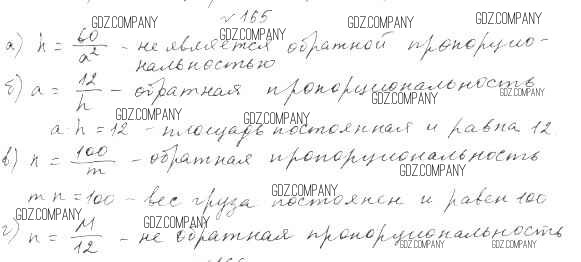 №165
а) h = 60/a² - не является обратной пропорцио-
нальностью
б) a = 12/h - обратная пропорциональность
a·h = 12 - площадь постоянная и равна 12
в) n = 100/m - обратная пропорциональность
mn = 100 - вес груза постоянен и равен 100
г) n = M/12 - не обратная пропорциональность
GDZ.COMPANY
GDZ.COMPANY
GDZ.COMPANY
GDZ.COMPANY
GDZ.COMPANY
GDZ.COMPANY
GDZ.COMPANY
GDZ.COMPANY
GDZ.COMPANY
GDZ.COMPANY
GDZ.COMPANY
GDZ.COMPANY
GDZ.COMPANY
GDZ.COMPANY